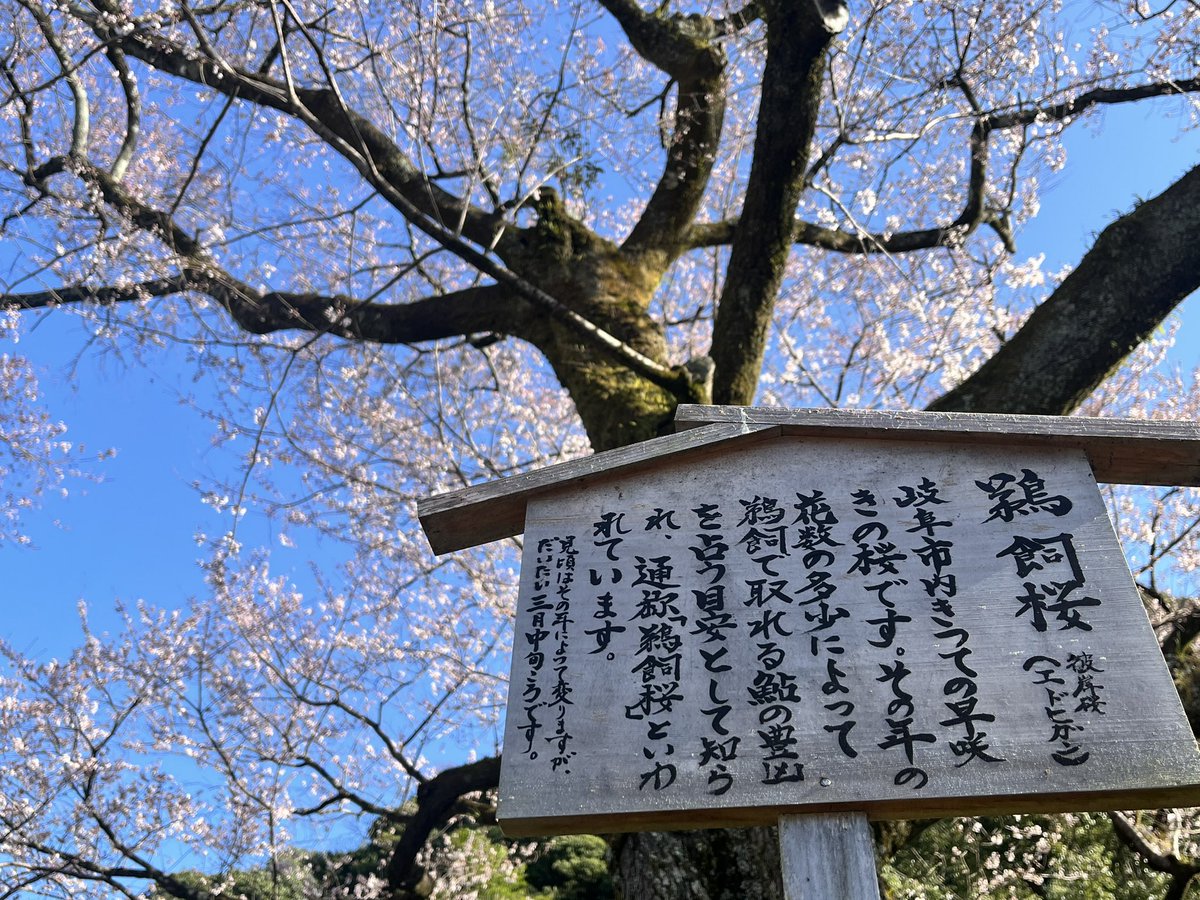 鵜飼桜
彼岸桜
(エドヒガン)
岐阜市内きっての早咲
きの桜です。その年の
花数の多少によって
鵜飼で取れる鮎の豊凶
を占う目安として知ら
れ、通称「鵜飼桜」といわ
れています。
見頃はその年によって変りますが、
だいたい三月中旬ごろです。